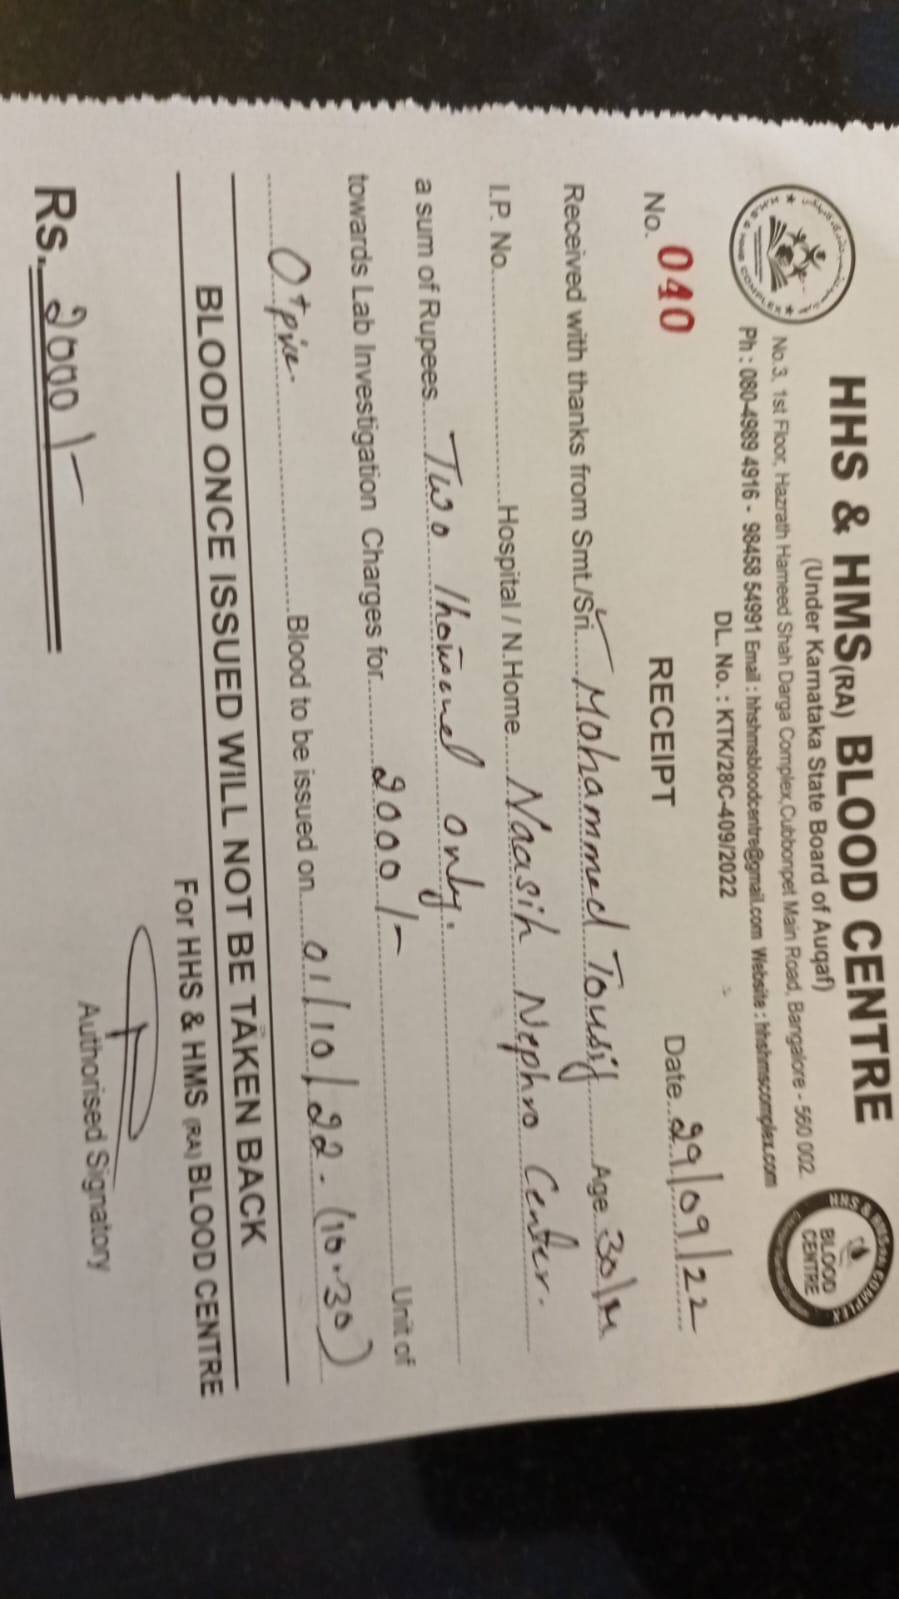 HHS & HMS(RA) BLOOD CENTRE
(Under Karnataka State Board of Auqaf)
No.3, 1st Floor, Hazrath Hameed Shah Darga Complex, Cubbonpet Main Road, Bangalore - 560 002.
Ph : 080-4989 4916 - 98458 54991 Email : hhshmsbloodcentre@gmail.com Website : hhshmscomplex.com
DL. No. : KTK/28C-409/2022
BLOOD CENTRE
No. 040 RECEIPT Date 29/09/22
Received with thanks from Smt./Sri. Mohammed Tousif Age 30/M
I.P. No. Hospital / N.Home Naasih Nephro Center.
a sum of Rupees Two Thousand only.
towards Lab Investigation Charges for 2000/- Unit of
O+pive. Blood to be issued on 01/10/22 - (10.30)
BLOOD ONCE ISSUED WILL NOT BE TAKEN BACK
For HHS & HMS (RA) BLOOD CENTRE
Rs. 2000/-
Authorised Signatory